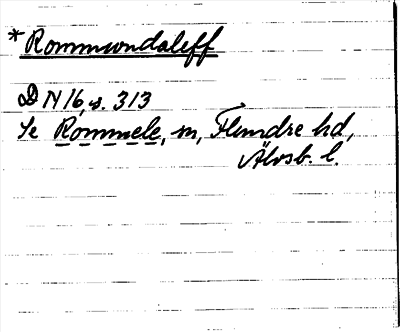 *Rommundaleff
DN 16, s. 313
Se Rommele, sn, Flundre hd,
Älvsb. l.